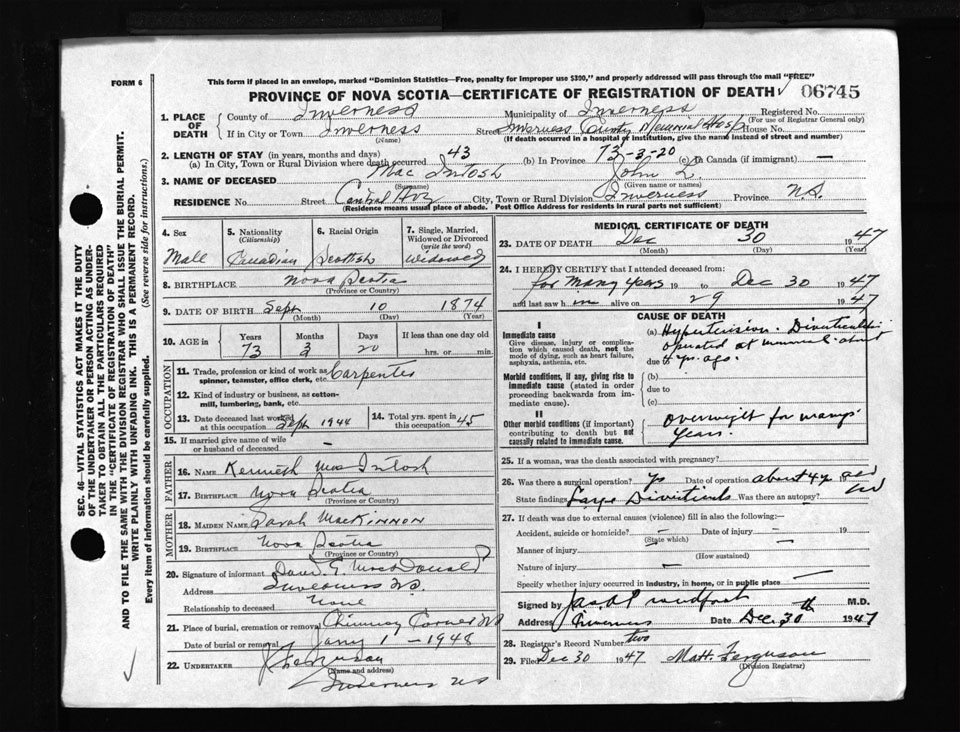 FORM 6
This form if placed in an envelope, marked "Dominion Statistics—Free, penalty for improper use $300," and properly addressed will pass through the mail "FREE"
PROVINCE OF NOVA SCOTIA—CERTIFICATE OF REGISTRATION OF DEATH 06745
1. PLACE OF DEATH County of Inverness Municipality of Inverness Registered No.
(For use of Registrar General only)
If in City or Town Inverness Street Inverness County Memorial Hosp House No.
(Name) (If death occurred in a hospital of institution, give the name instead of street and number)
2. LENGTH OF STAY (in years, months and days)
(a) In City, Town or Rural Division where death occurred 43 (b) In Province 73-3-20 (c) In Canada (if immigrant) —
3. NAME OF DECEASED Mac Intosh John L.
(Surname) (Given name or names)
RESIDENCE No. Street Central Ave City, Town or Rural Division Inverness Province N.S.
(Residence means usual place of abode. Post Office Address for residents in rural parts not sufficient)
4. Sex Male
5. Nationality (Citizenship) Canadian
6. Racial Origin Scottish
7. Single, Married, Widowed or Divorced (write the word) Widowed
8. BIRTHPLACE Nova Scotia
(Province or Country)
9. DATE OF BIRTH Sept 10 1874
(Month) (Day) (Year)
10. AGE in Years Months Days If less than one day old
73 3 20 hrs. or min.
OCCUPATION
11. Trade, profession or kind of work as spinner, teamster, office clerk, etc. Carpenter
12. Kind of industry or business, as cotton-mill, lumbering, bank, etc.
13. Date deceased last worked at this occupation Sept 1944
14. Total yrs. spent in this occupation 45
15. If married give name of wife or husband of deceased —
FATHER
16. NAME Kenneth Mac Intosh
17. BIRTHPLACE Nova Scotia
(Province or Country)
MOTHER
18. MAIDEN NAME Sarah MacKinnon
19. BIRTHPLACE Nova Scotia
(Province or Country)
20. Signature of informant G. MacDonald
Address Inverness N.S.
Relationship to deceased None
21. Place of burial, cremation or removal Chimney Corner NS
Date of burial or removal Jany 1 – 1948
22. UNDERTAKER
(Name and address)
Inverness NS
MEDICAL CERTIFICATE OF DEATH
23. DATE OF DEATH Dec 30 1947
(Month) (Day) (Year)
24. I HEREBY CERTIFY that I attended deceased from:
for many years 19 to Dec 30 1947
and last saw him alive on 29 1947
CAUSE OF DEATH
I
Immediate cause
Give disease, injury or complication which caused death, not the mode of dying, such as heart failure, asphyxia, asthenia, etc.
(a) Hypertension. Diverticulitis
operated at about
due to 4 yr. ago.
Morbid conditions, if any, giving rise to immediate cause (stated in order proceeding backwards from immediate cause).
(b)
due to
(c)
II
Other morbid conditions (if important) contributing to death but not causally related to immediate cause.
Overweight for many years.
25. If a woman, was the death associated with pregnancy?
26. Was there a surgical operation? yes Date of operation about 4 yr ago
State findings Large Diverticula Was there an autopsy? no
27. If death was due to external causes (violence) fill in also the following:—
Accident, suicide or homicide? — Date of injury — 19
(State which)
Manner of injury —
(How sustained)
Nature of injury —
Specify whether injury occurred in industry, in home, or in public place —
Signed by M.D.
Address Inverness Date Dec 30th 1947
28. Registrar's Record Number two
29. Filed Dec 30 1947 Matt. Ferguson
(Division Registrar)
SEC. 46—VITAL STATISTICS ACT MAKES IT THE DUTY
OF THE UNDERTAKER OR PERSON ACTING AS UNDERTAKER
TO OBTAIN ALL THE PARTICULARS REQUIRED
IN THE "CERTIFICATE OF REGISTRATION OF DEATH"
AND TO FILE THE SAME WITH THE DIVISION REGISTRAR WHO SHALL ISSUE THE BURIAL PERMIT.
WRITE PLAINLY WITH UNFADING INK. THIS IS A PERMANENT RECORD.
Every item of information should be carefully supplied. (See reverse side for instructions.)